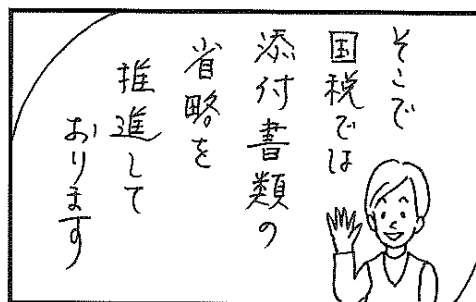 そこで
国税では
添付書類の
省略を
推進して
おります